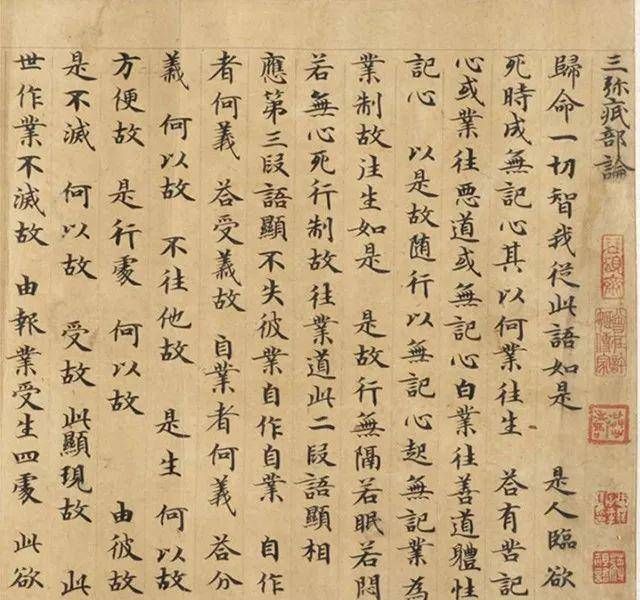 三弥底部論
歸命一切智我從此語如是　是人臨欲
死時成無記心其以何業往生　荅有苦記
心或業往悪道或無記心白業往善道體性
記心　以是故随行以無記心起無記業為
業制故注生如是　是故行無隔若眠若悶
若無心死行制故往業道此二段語顯相
應第三段語顯不失彼業自作自業　自作
者何義　荅受義故　自業者何義　荅分
義　何以故　不往他故　是生　何以故
方便故　是行處　何以故　　由彼故
是不滅　何以故　受故　此顯現故　此
世作業不滅故　由報業受生四處　此欲